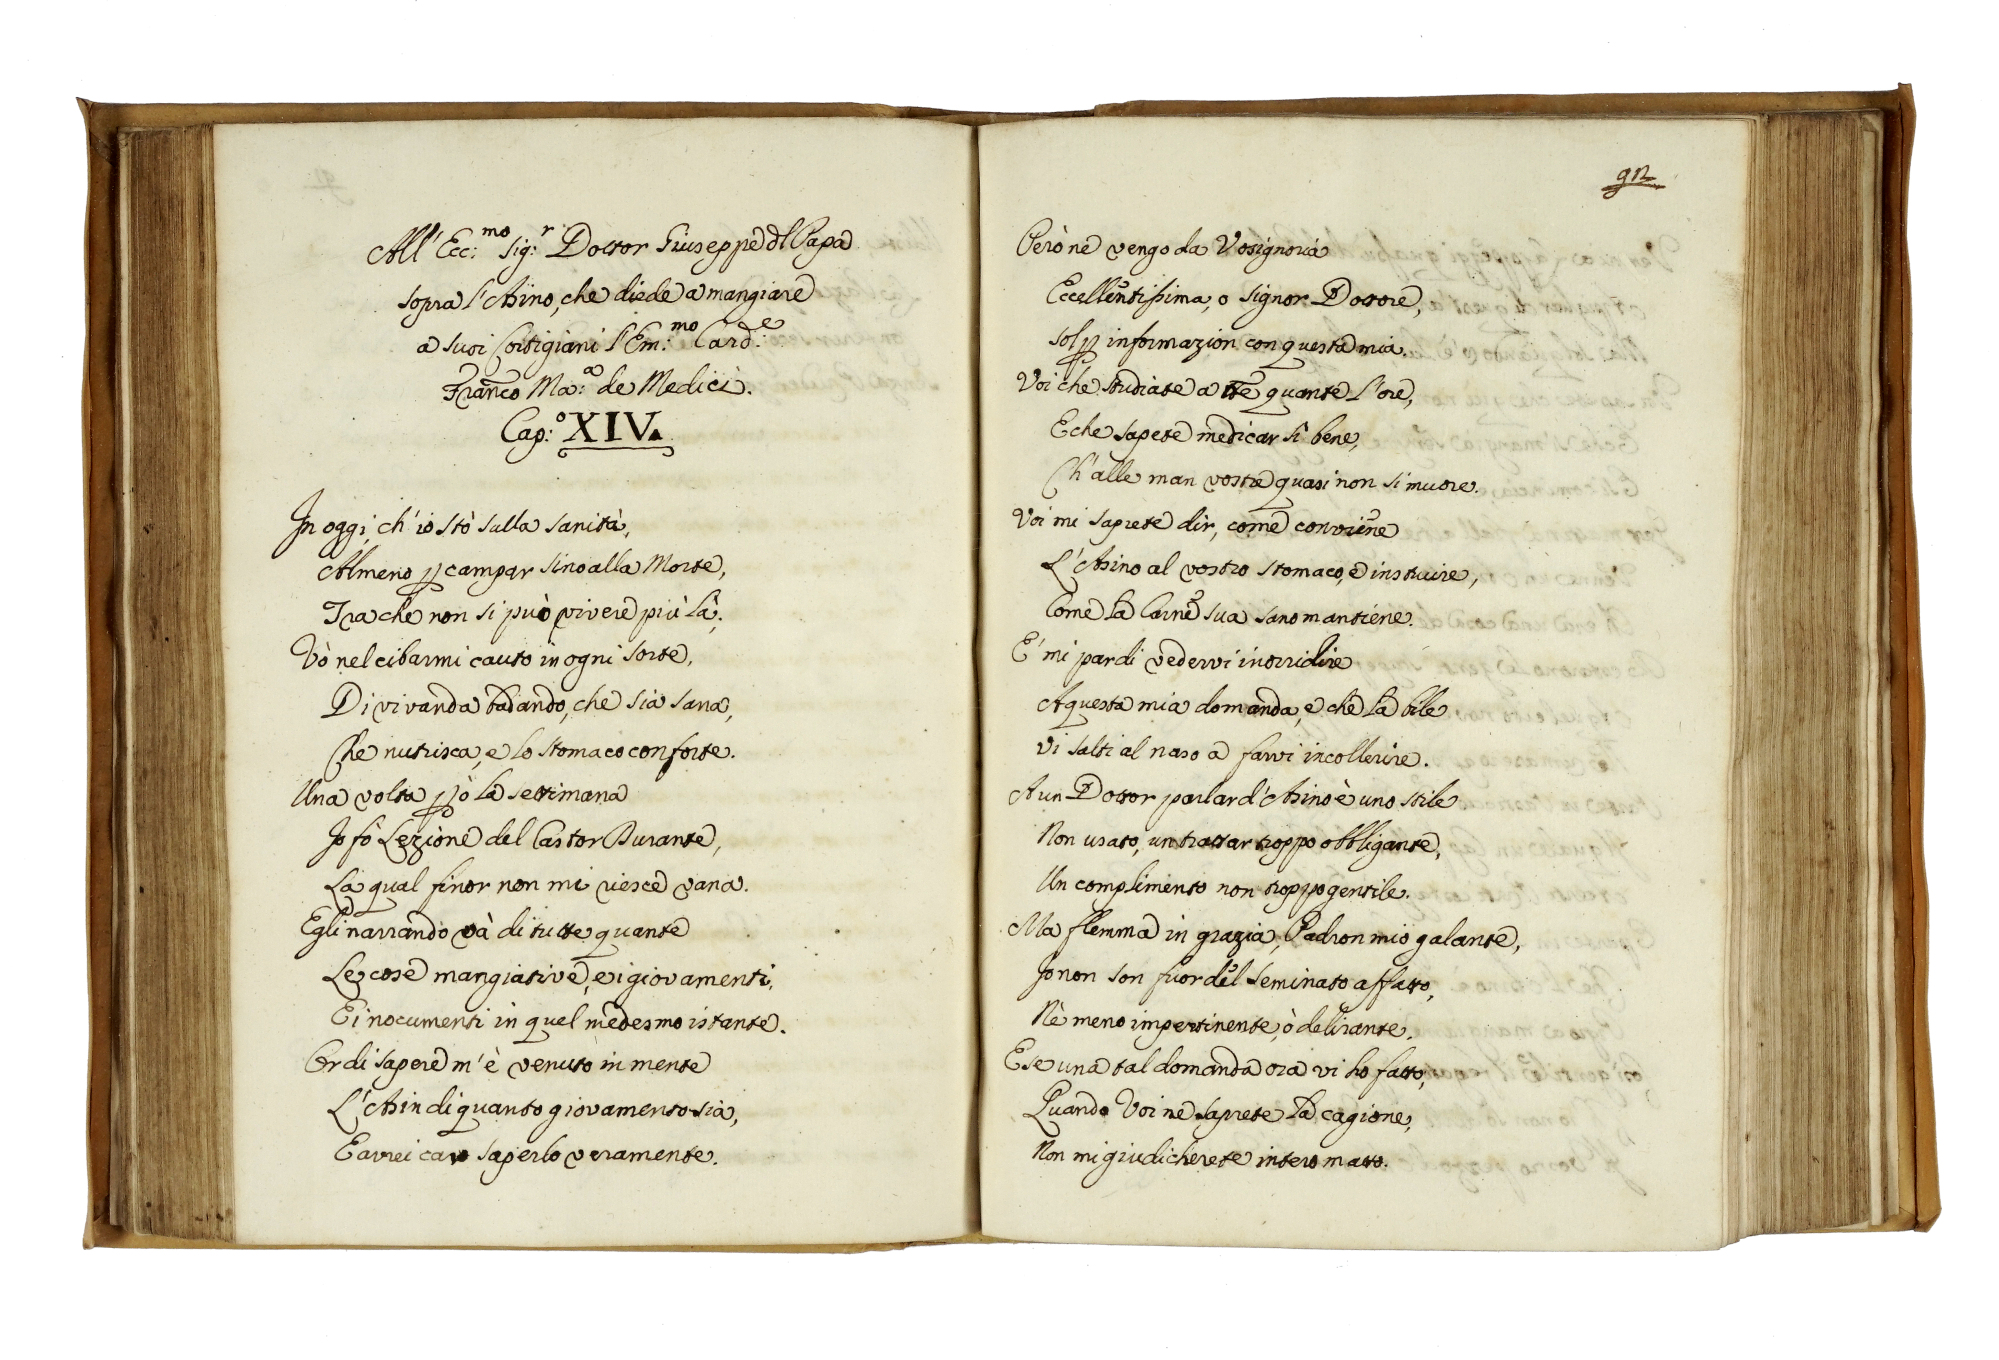 All' Ecc:mo Sig:r Dottor Giuseppe dl Papa
sopra l'Asino, che diede a mangiare
a suoi Cortigiani l'Em:mo Card:e
Franco Ma:a de Medici.
Cap:o XIV.
In oggi, ch'io stò sulla sanità,
Almeno p campar sino alla Morte,
Tra che non si può vivere più là;
Vò nel cibarmi cauto in ogni sorte,
Di vivanda badando, che sia sana,
Che nutrisca, e lo stomaco conforte.
Una volta p ò la settimana
Io fò Lezione del Castor Durante,
La qual finor non mi riesce vana.
Egli narrando và di tutte quante
Le cose mangiative, e i giovamenti,
E i nocumenti in quel medesmo istante.
Or di sapere m'è venuto in mente
L'Asin di quanto giovamento sia,
E avrei caro saperlo veramente.
92
Però ne vengo da Vosignoria
Eccellentissima, o signor Dottore,
Sol p informazion con questa mia.
Voi che studiate a tte quante l'ore,
E che sapete medicar sì bene,
Ch'alle man vostre quasi non si muore.
Voi mi saprete dir, come conviene
L'Asino al vostro stomaco, e instruire,
Come la Carne sua sano mantiene.
E' mi par di vedervi inorridire
A questa mia domanda, e che la bile
Vi salti al naso a farvi incollerire.
A un Dottor parlar d'Asino è uno stile
Non usato, un trattar troppo obbligante,
Un complimento non troppo gentile.
Ma flemma in grazia, Padron mio galante,
Io non son fuor del seminato affatto,
Nè meno impertinente, ò delirante.
E se una tal domanda ora vi ho fatto,
Quando Voi ne saprete la cagione,
Non mi giudicherete intero matto.